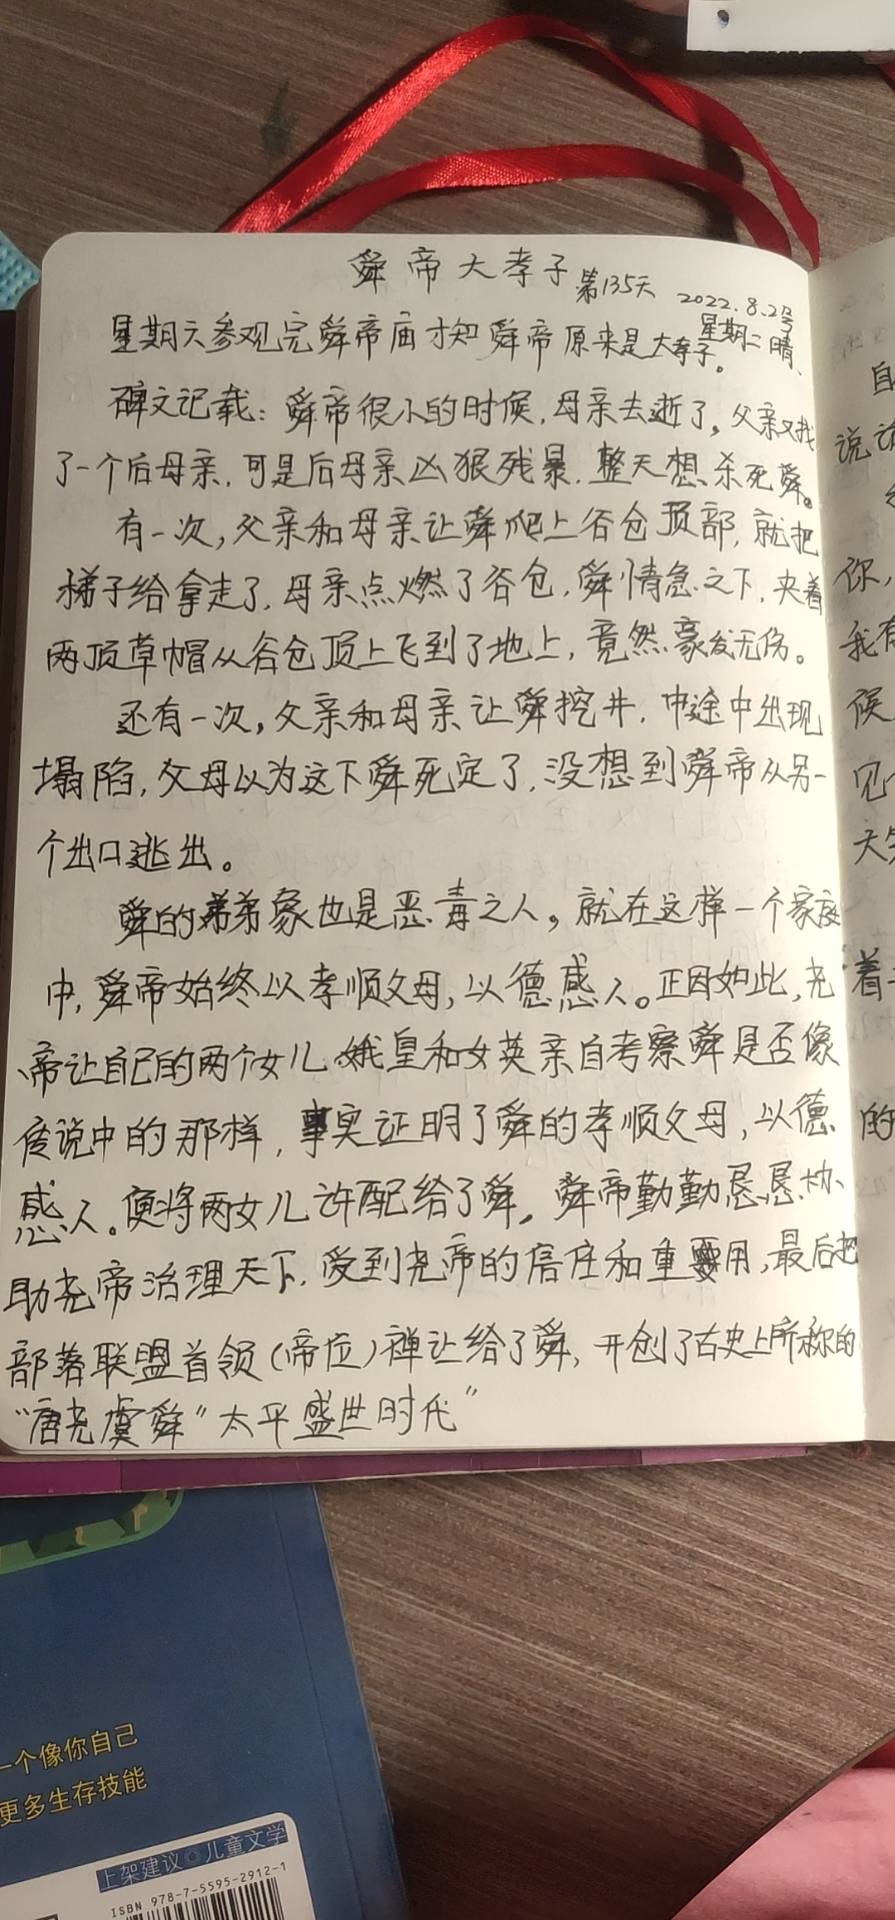 舜帝大孝子 第135天 2022.8.2号
星期二晴、
星期六参观完舜帝庙才知舜帝原来是大孝子。
碑文记载：舜帝很小的时候，母亲去逝了，父亲又找
了一个后母亲，可是后母亲凶狠残暴，整天想杀死舜。
有一次，父亲和母亲让舜爬上谷仓顶部，就把
梯子给拿走了，母亲点燃了谷仓，舜情急之下，夹着
两顶草帽从谷仓顶上飞到了地上，竟然豪发无伤。
还有一次，父亲和母亲让舜挖井，中途中出现
塌陷，父母以为这下舜死定了，没想到舜帝从另一
个出口逃出。
舜的弟弟象也是恶毒之人。就在这样一个家庭
中，舜帝始终以孝顺父母，以德感人。正因如此，尧
帝让自己的两个女儿娥皇和女英亲自考察舜是否像
传说中的那样，事实证明了舜的孝顺父母，以德
感人。便将两女儿许配给了舜。舜帝勤勤恳恳协
助尧帝治理天下，受到尧帝的信任和重要用，最后把
部落联盟首领（帝位）禅让给了舜，开创了古史上所称的
“唐尧虞舜”太平盛世时代”
自
说
你，
我有
候
见
天
着
的
一个像你自己
更多生存技能
上架建议 儿童文学
ISBN 978-7-5595-2912-1